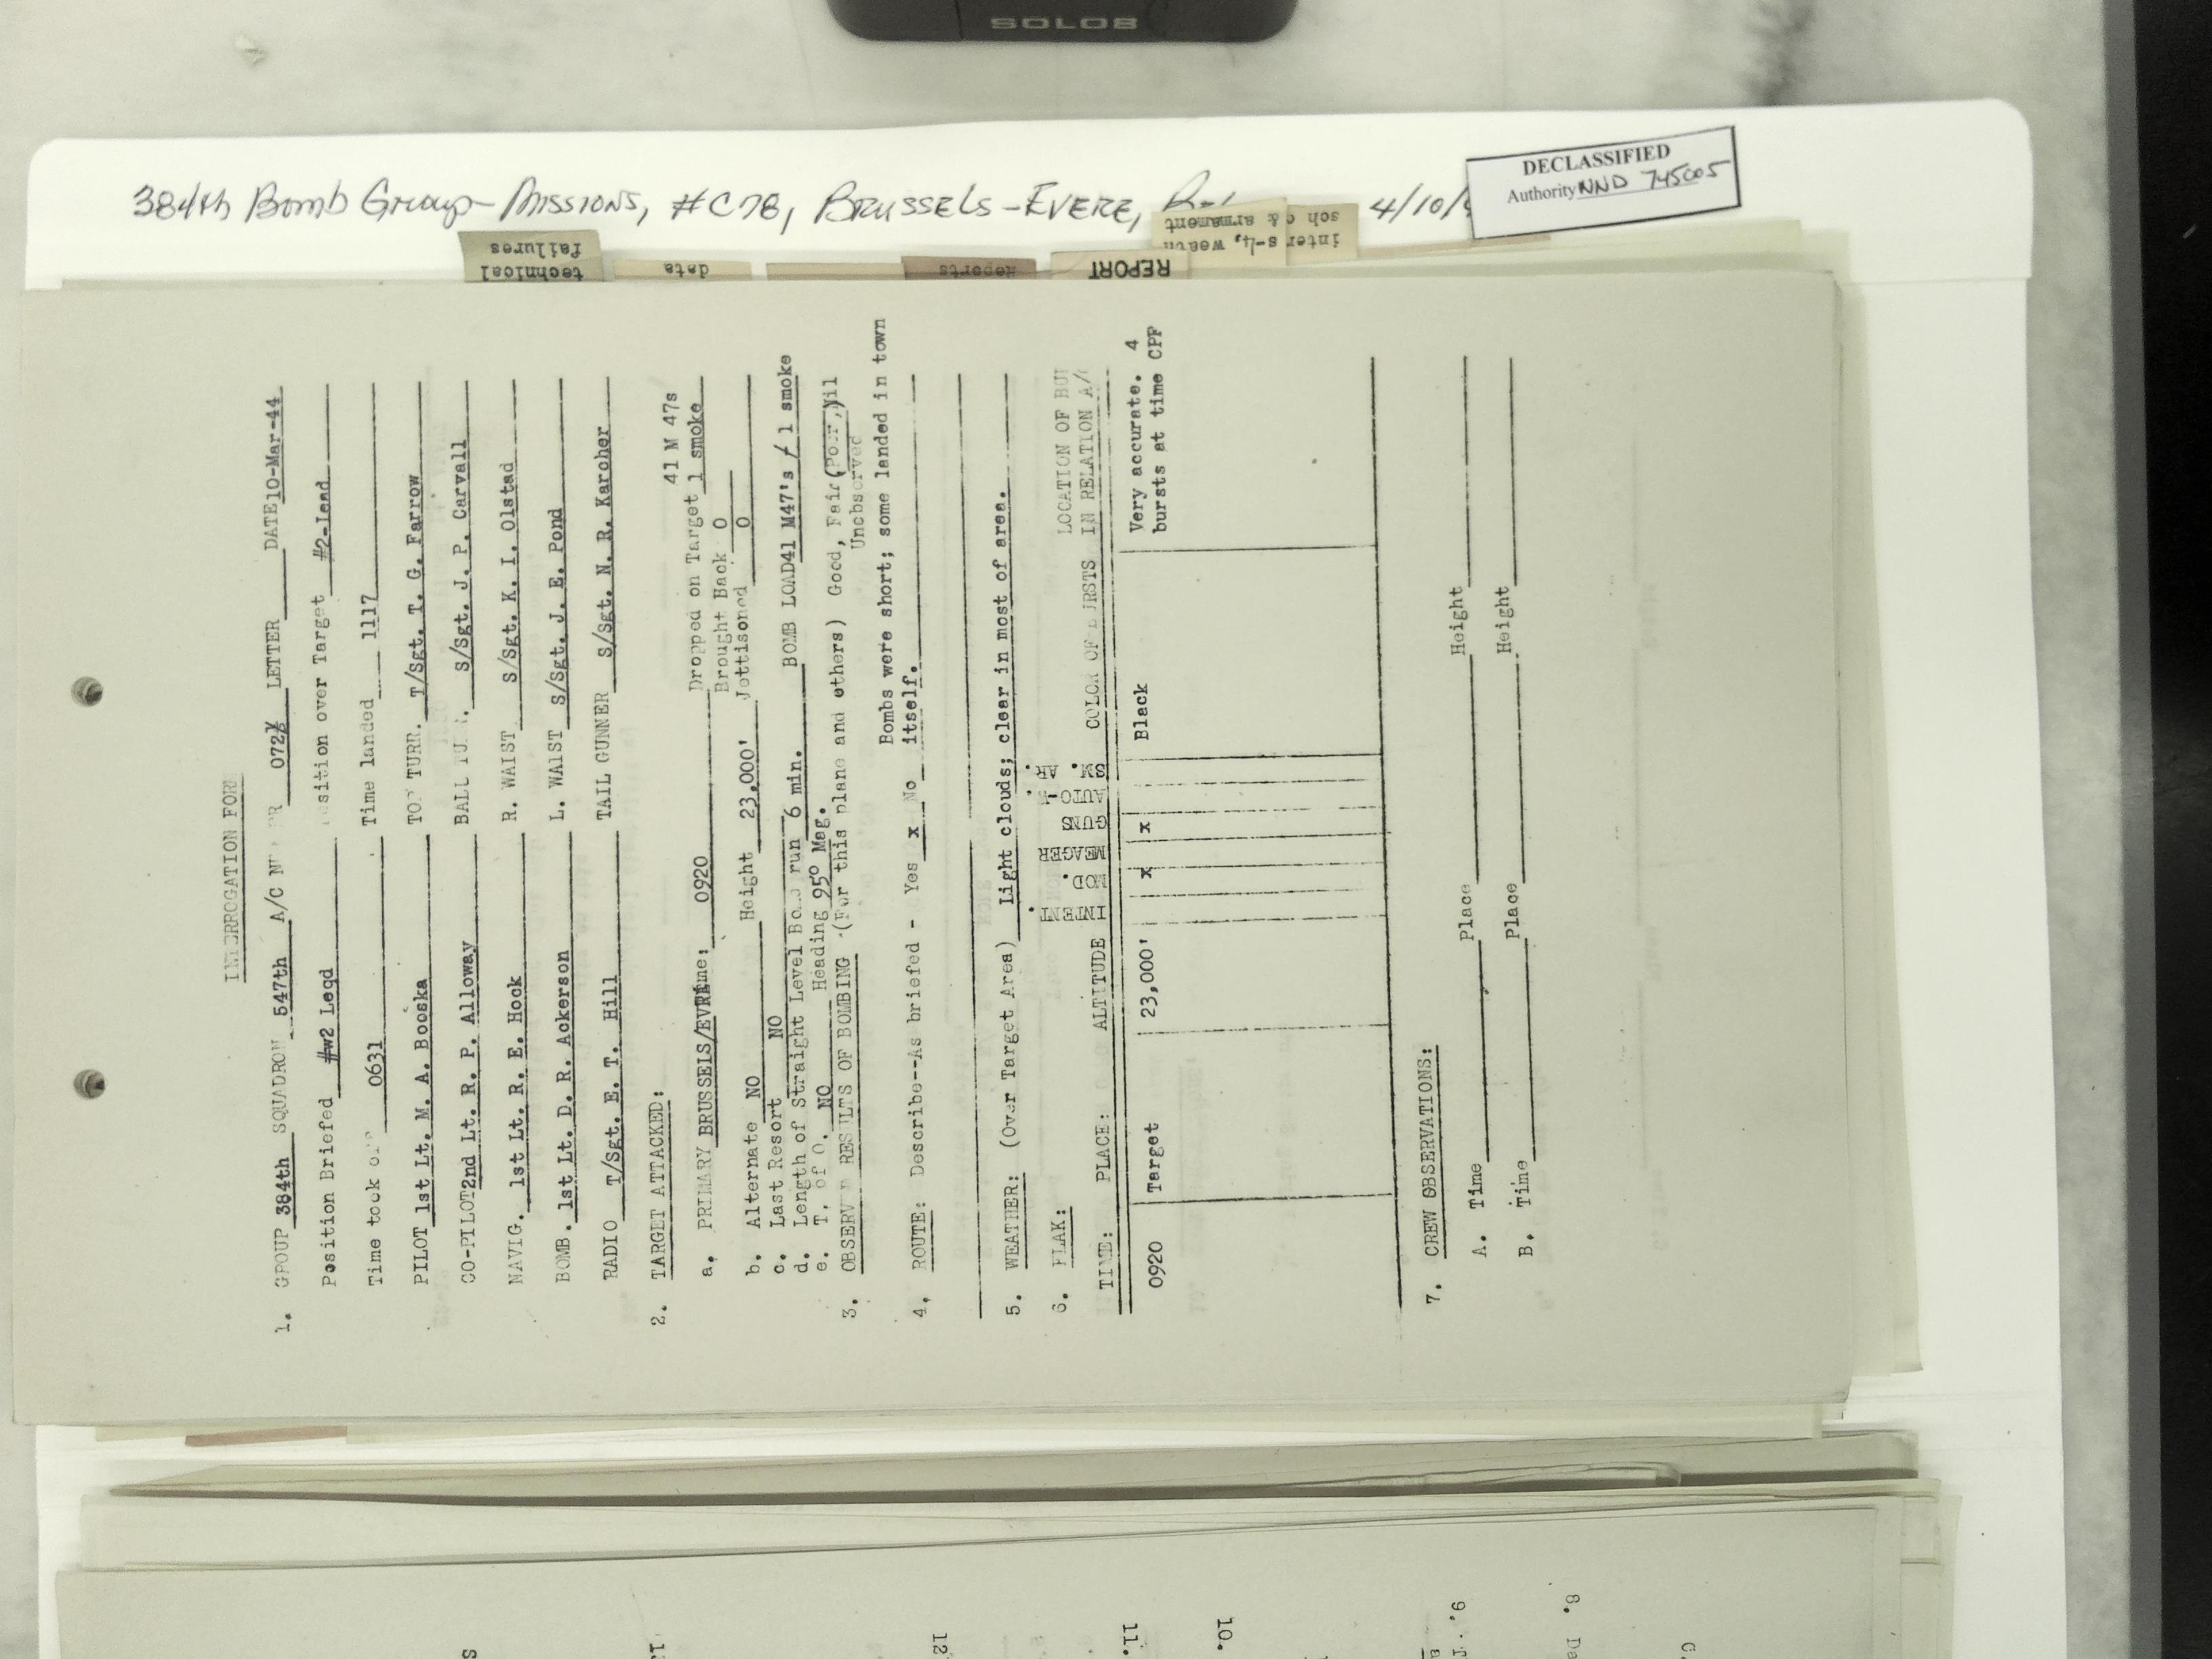 SOLO8
384th Bomb Group- Missions, #C78, Brussels-Evere,
4/10/
DECLASSIFIED
Authority NND 745005
technical
failures
data
Reports
REPORT
inter s-4, weath
sch & armament
INTERROGATION FORM
1. GROUP 384th SQUADRON 547th A/C LETTER DATE 10-Mar-44
Position Briefed #w2 Leqd Position over Target #2-lead
Time took off 0631 Time landed 1117
PILOT 1st Lt. M. A. Booska TOP TURR. T/Sgt. T. G. Farrow
CO-PILOT 2nd Lt. R. P. Alloway BALL TUR. S/Sgt. J. P. Carvall
NAVIG. 1st Lt. R. E. Hock R. WAIST S/Sgt. K. I. Olstad
BOMB. 1st Lt. D. R. Ackerson L. WAIST S/Sgt. J. E. Pond
RADIO T/Sgt. E. T. Hill TAIL GUNNER S/Sgt. N. R. Karcher
2. TARGET ATTACKED: 41 M 47s
a. PRIMARY BRUSSELS/EVREme: 0920 Dropped on Target 1 smoke
Brought Back 0
b. Alternate NO Height 23,000' Jettisoned 0
c. Last Resort NO
d. Length of Straight Level Bomb run 6 min. BOMB LOAD 41 M47's / 1 smoke
e. T. of O. NO Heading 95° Mag.
3. OBSERVED RESULTS OF BOMBING (For this plane and others) Good, Fair (Poor, Nil
Unobserved
Bombs were short; some landed in town
itself.
4. ROUTE: Describe--As briefed - Yes x No
5. WEATHER: (Over Target Area) Light clouds; clear in most of area.
6. FLAK:
LOCATION OF BU
TIME: PLACE: ALTITUDE INTENT. MOD. MEAGER GUNS AUTO- SM. AR. COLOR OF BURSTS IN RELATION A/
0920 Target 23,000' x x Black Very accurate. 4
bursts at time CPF
7. CREW OBSERVATIONS:
A. Time Place Height
B. Time Place Height
12
11.
10.
9.
8.